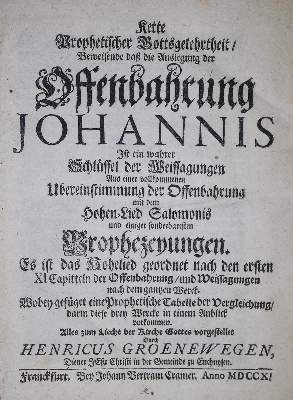 Kette
Prophetischer Gottsgelehrtheit /
Beweisende daß die Auslegung der
Offenbahrung
JOHANNIS
Ist ein wahrer
Schlüssel der Weissagungen
Aus einer vollkommenen
Ubereinstimmung der Offenbahrung
mit dem
Hohen-Lied Salomonis
und einiger sonderbahrsten
Prophezeyungen.
Es ist das Hohelied geordnet nach den ersten
XI Capitteln der Offenbahrung / und Weisagungen
nach dem gantzen Werck.
Wobey gefüget eine Prophetische Tabelle der Vergleichung /
darin diese drey Wercke in einem Anblick
vorkommen.
Alles zum Liecht der Kirche Gottes vorgestellet
Durch
HENRICUS GROENEWEGEN,
Diener JEsu Christi in der Gemeinde zu Enchuysen.
Franckfurt. Bey Johann Bertram Cramer. Anno MDCCXI